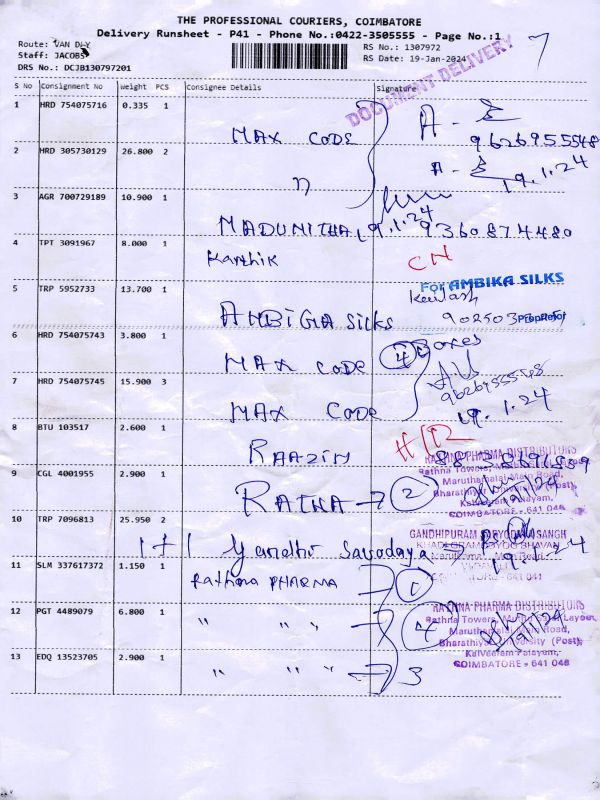 THE PROFESSIONAL COURIERS, COIMBATORE
Delivery Runsheet - P41 - Phone No.:0422-3505555 - Page No.:1
Route: VAN DLY
Staff: JACOBS
DRS No.: DCJB130797201
RS No.: 1307972
RS Date: 19-Jan-2024
DOCUMENT DELIVERY
S No Consignment No Weight PCS Consignee Details Signature
1 HRD 754075716 0.335 1
MAX CODE A -
9626955548
2 HRD 305730129 26.800 2
A -
19.1.24
3 AGR 700729189 10.900 1
MADUNITHA 19.1.24 9360874480
4 TPT 3091967 8.000 1
Karthik
5 TRP 5952733 13.700 1
For AMBIKA SILKS
Kailash
AMBIGA SILKS
Proprietor
6 HRD 754075743 3.800 1
MAX CODE 4 Boxes
9626955548
7 HRD 754075745 15.900 3
MAX CODE 19.1.24
8 BTU 103517 2.600 1
RAAZIM
9 CGL 4001955 2.900 1
RATNA → 2
RATHNA PHARMA DISTRIBUTORS
Rathna Towers,
Maruthamalai Main Road,
Bharathiyar University (Post),
Kalveeram Palayam,
COIMBATORE - 641 046
10 TRP 7096813 25.950 2
1+1 Gandhi Savodaya
GANDHIPURAM SARVODAYA SANGH
19.1.24
11 SLM 337617372 1.150 1
Rathna PHARMA → 1
641 041
12 PGT 4489079 6.800 1
" " " → 4
RATHNA PHARMA DISTRIBUTORS
Rathna Towers,
Maruthamalai Main Road,
Bharathiyar University (Post),
Kalveeram Palayam,
COIMBATORE - 641 046
13 EDQ 13523705 2.900 1
" " " → 3